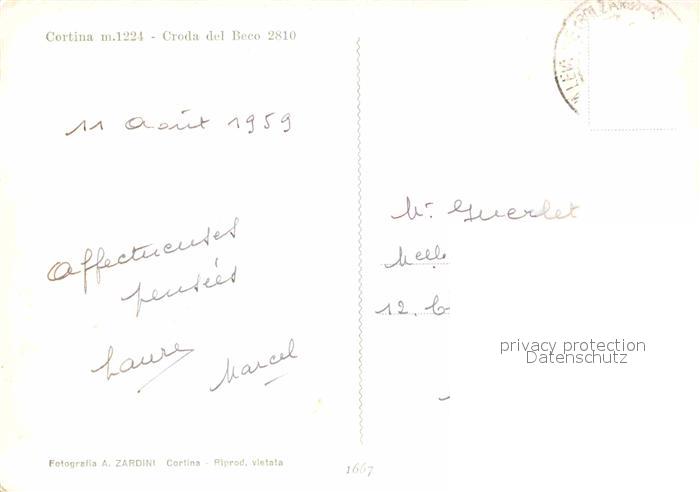 Cortina m.1224 - Croda del Beco 2810
11 Août 1959
Affectueuses
pensées
Laure
Marcel
Mr. Guerlet
Melle
12. b
privacy protection
Datenschutz
Fotografia A. ZARDINI Cortina - Riprod. vietata
1667